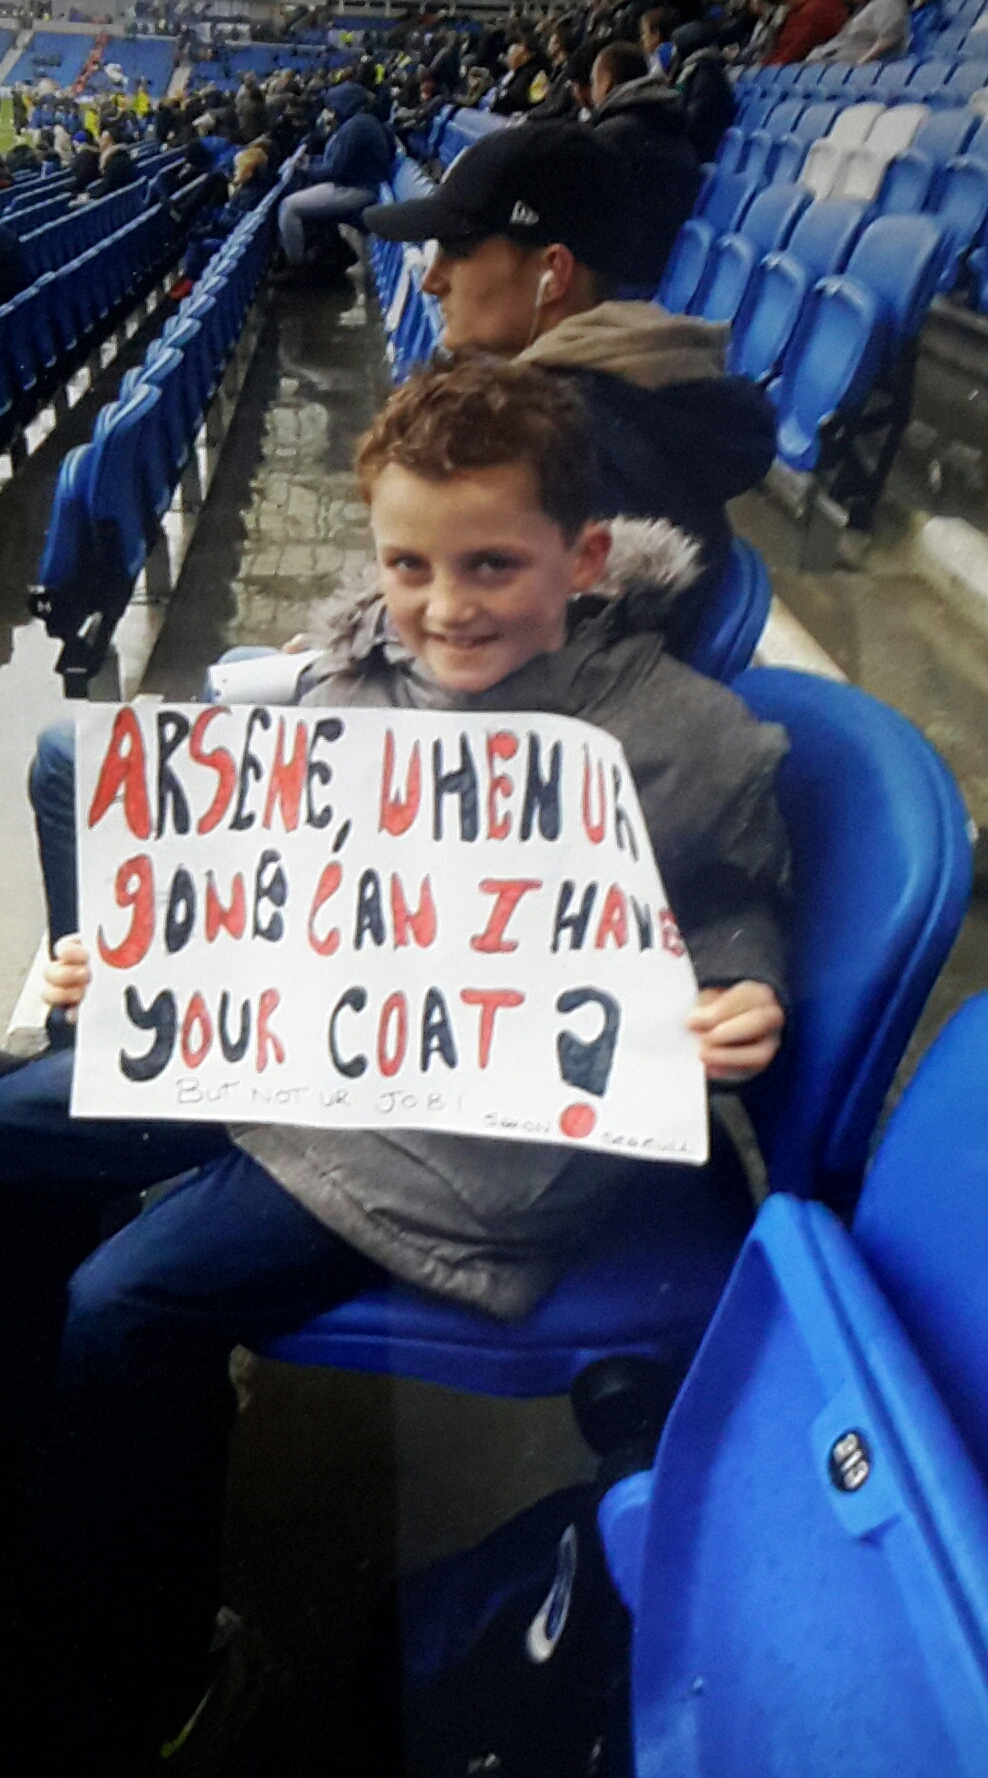 ARSENE, WHEN UR
gONE CAN I HAVE
YOUR COAT ?
BUT NOT UR JOB!
SIMON
213